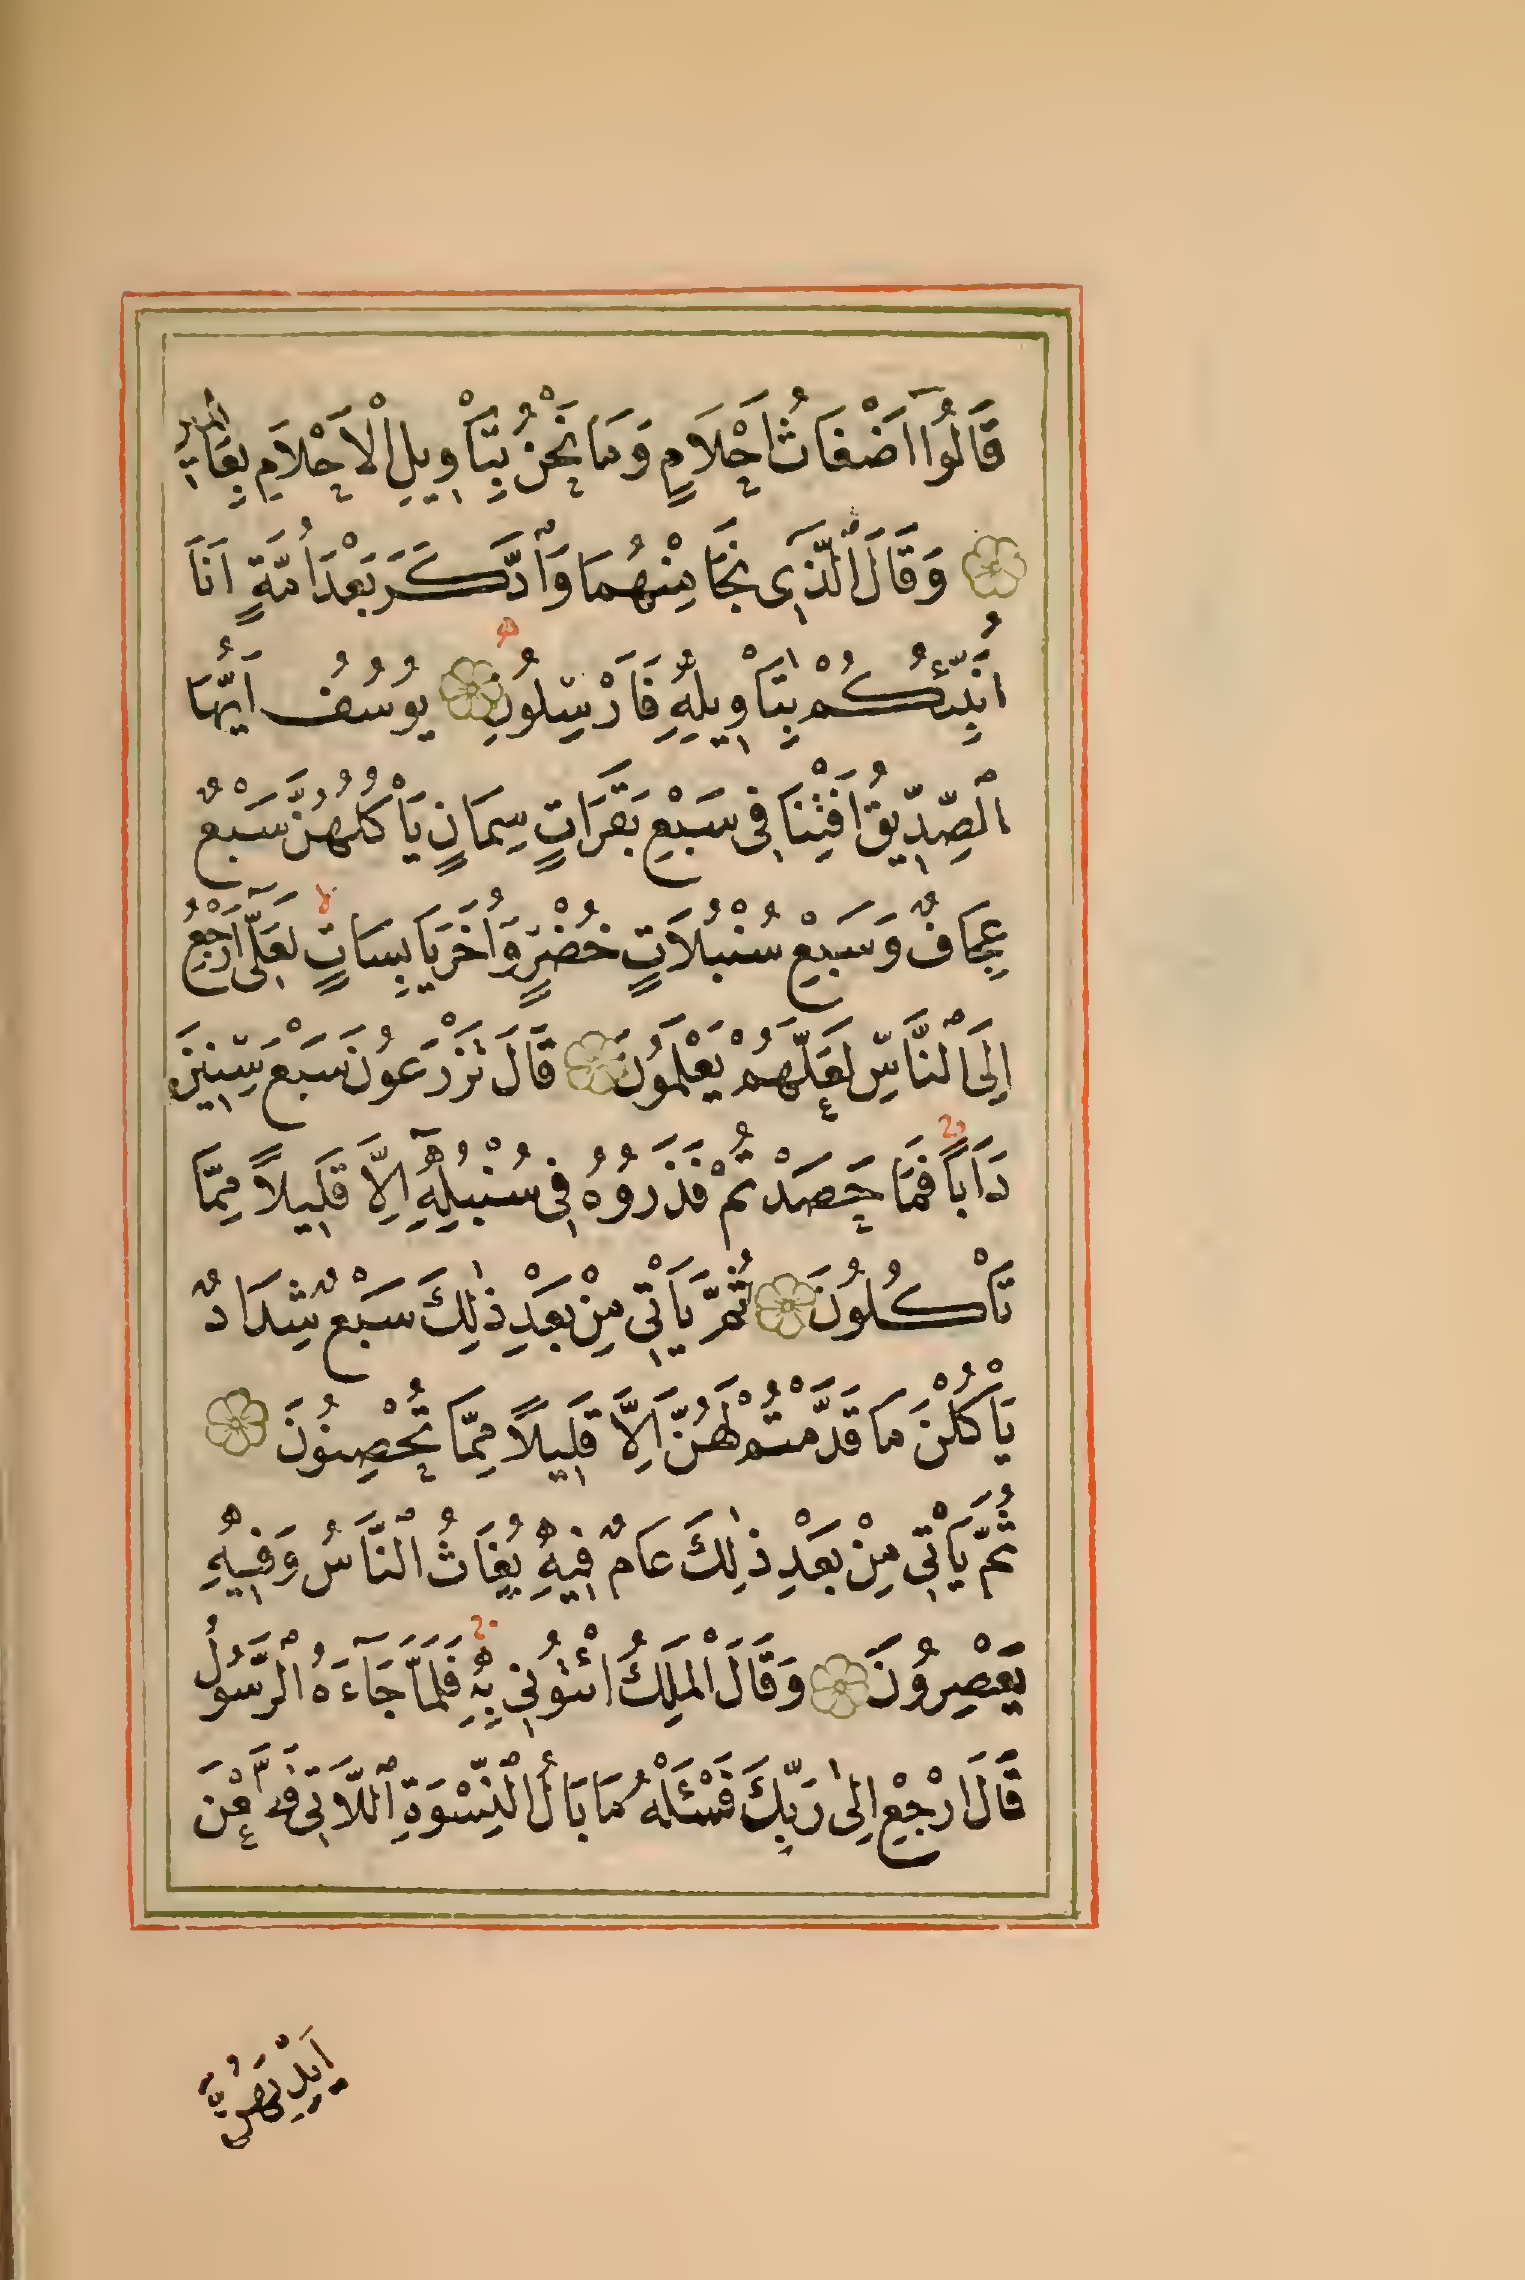 قَالُوٓا اَضْغَاثُ اَحْلَامٍ وَمَا نَحْنُ بِتَأْوِيلِ الْاَحْلَامِ بِعَالِمِينَ
وَقَالَ الَّذِى نَجَا مِنْهُمَا وَادَّكَرَ بَعْدَ اُمَّةٍ اَنَا
اُنَبِّئُكُمْ بِتَأْوِيلِهِ فَاَرْسِلُونِ يُوسُفُ اَيُّهَا
الصِّدِّيقُ اَفْتِنَا فِى سَبْعِ بَقَرَاتٍ سِمَانٍ يَأْكُلُهُنَّ سَبْعٌ
عِجَافٌ وَسَبْعِ سُنْبُلَاتٍ خُضْرٍ وَاُخَرَ يَابِسَاتٍ لَعَلِّىٓ اَرْجِعُ
اِلَى النَّاسِ لَعَلَّهُمْ يَعْلَمُونَ قَالَ تَزْرَعُونَ سَبْعَ سِنِينَ
دَاَبًا فَمَا حَصَدْتُمْ فَذَرُوهُ فِى سُنْبُلِهِٓ اِلَّا قَلِيلًا مِمَّا
تَأْكُلُونَ ثُمَّ يَأْتِى مِنْ بَعْدِ ذٰلِكَ سَبْعٌ شِدَادٌ
يَأْكُلْنَ مَا قَدَّمْتُمْ لَهُنَّ اِلَّا قَلِيلًا مِمَّا تُحْصِنُونَ
ثُمَّ يَأْتِى مِنْ بَعْدِ ذٰلِكَ عَامٌ فِيهِ يُغَاثُ النَّاسُ وَفِيهِ
يَعْصِرُونَ وَقَالَ الْمَلِكُ ائْتُونِى بِهِ فَلَمَّا جَآءَهُ الرَّسُولُ
قَالَ ارْجِعْ اِلٰى رَبِّكَ فَسْئَلْهُ مَا بَالُ النِّسْوَةِ اللَّاتِى قَطَّعْنَ
اَيْدِيَهُنَّ